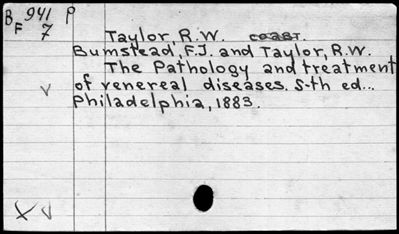 B 941 P
F 7
Taylor, R.W. coaut.
Bumstead, F.J. and Taylor, R.W.
The Pathology and treatment
of venereal diseases. 5-th ed...
Philadelphia, 1883.